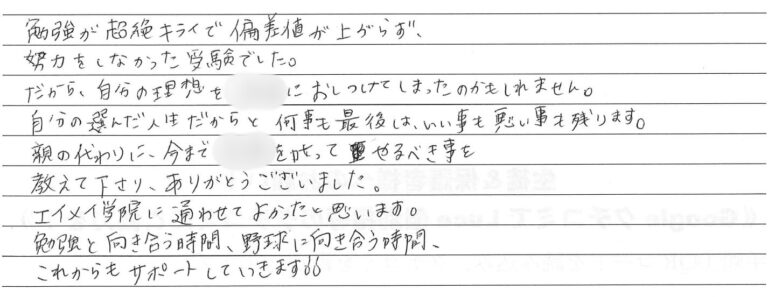 勉強が超絶キライで偏差値が上がらず、
努力をしなかった受験でした。
だから、自分の理想を におしつけてしまったのかもしれません。
自分の選んだ人生だからと何事も最後は、いい事も悪い事も残ります。
親の代わりに、今まで をかって やるべき事を
教えて下さり、ありがとうございました。
エイメイ学院に通わせてよかったと思います。
勉強と向き合う時間、野球に向き合う時間、
これからもサポートしていきます